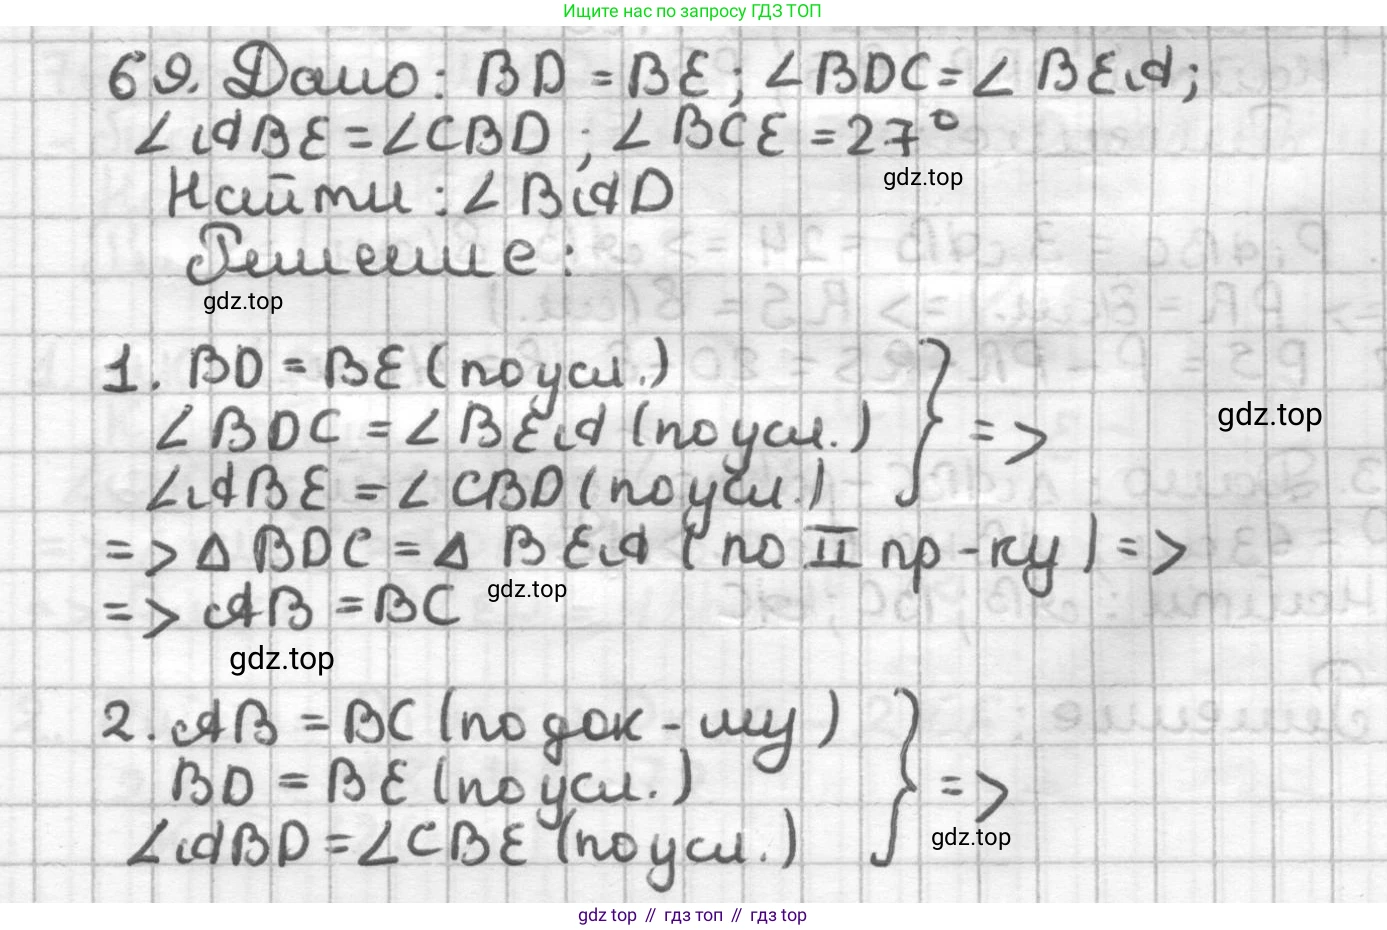 Ищите нас по запросу ГДЗ ТОП
69. Дано: BD = BE; ∠BDC = ∠BEA;
∠ABE = ∠CBD; ∠BCE = 27°
gdz.top
Найти: ∠BAD
Решение:
gdz.top
1. BD = BE (по усл.)
∠BDC = ∠BEA (по усл.) } =>
gdz.top
∠ABE = ∠CBD (по усл.)
=> Δ BDC = Δ BEA (по II пр-ку) =>
gdz.top
=> AB = BC
gdz.top
2. AB = BC (по док-му)
BD = BE (по усл.) } =>
∠ABD = ∠CBE (по усл.)
gdz.top
gdz top // гдз топ // gdz top